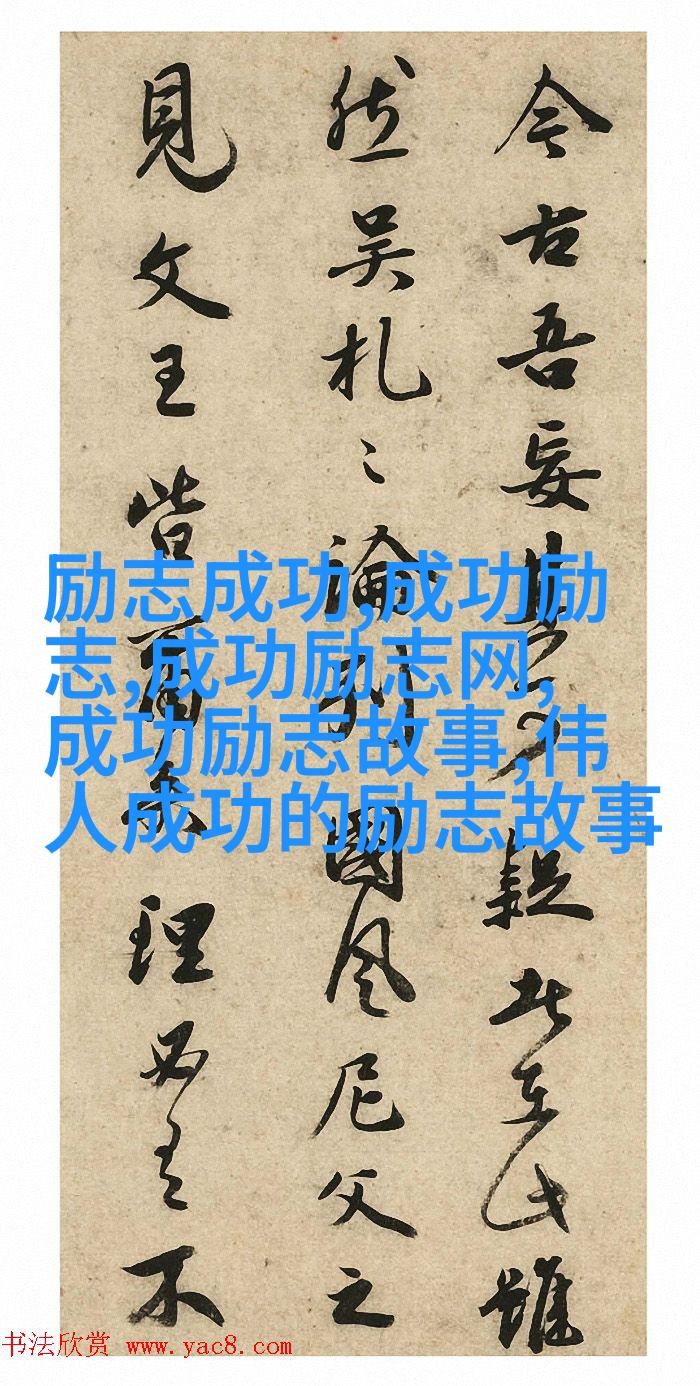 今古吾妄其可疑者在此雖
然吴札〻論列國風尼父之
見文王皆有矣理必有不
励志成功,成功励
志,成功励志网,
成功励志故事,伟
人成功的励志故事
书法欣赏 www.yac8.com